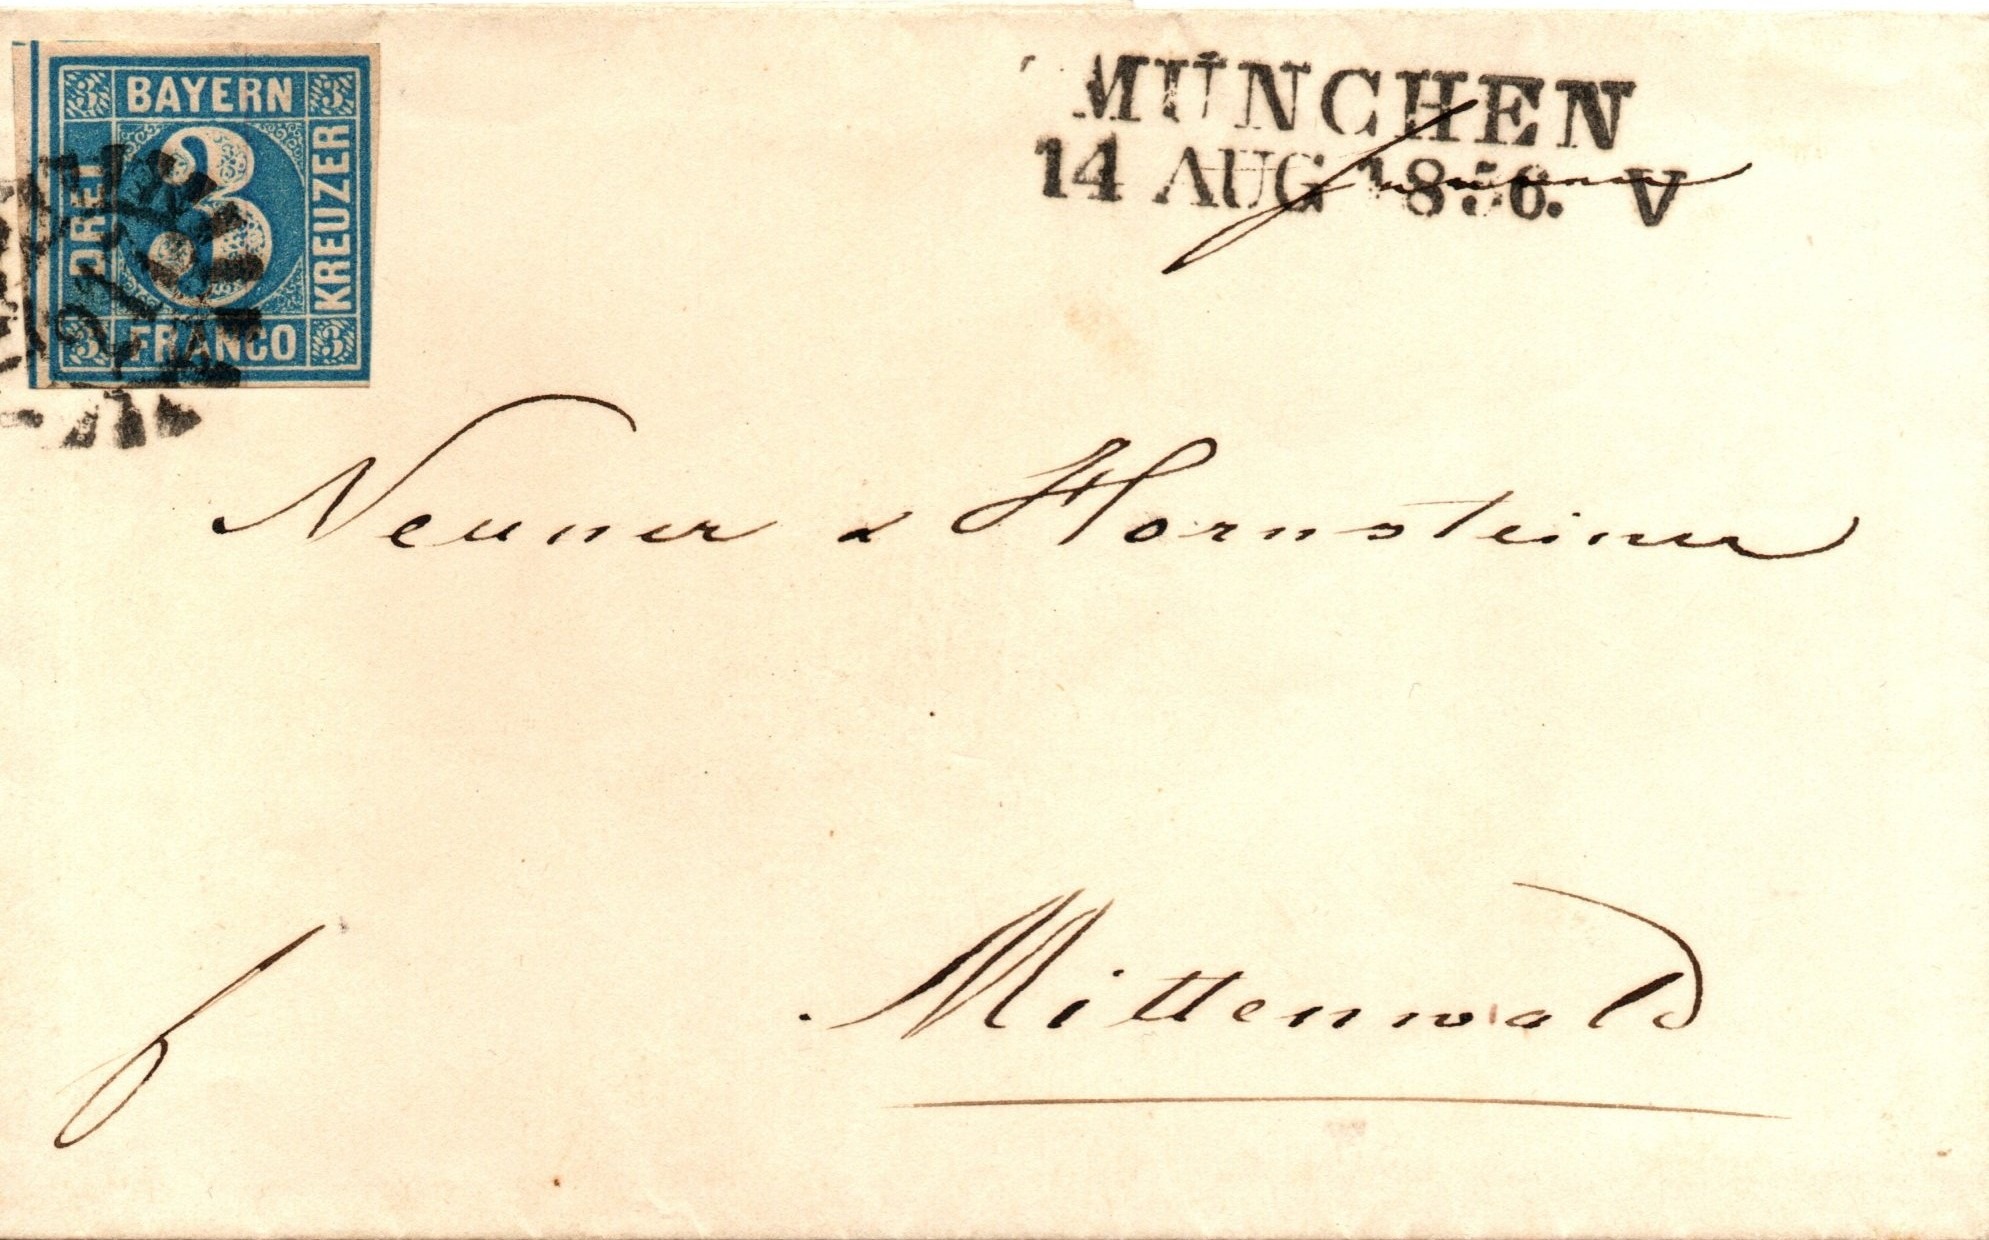 3 BAYERN 3
DREI
3
KREUZER
3 FRANCO 3
MÜNCHEN
14 AUG 1856. V
Neuner & Hornsteiner
Mittenwald